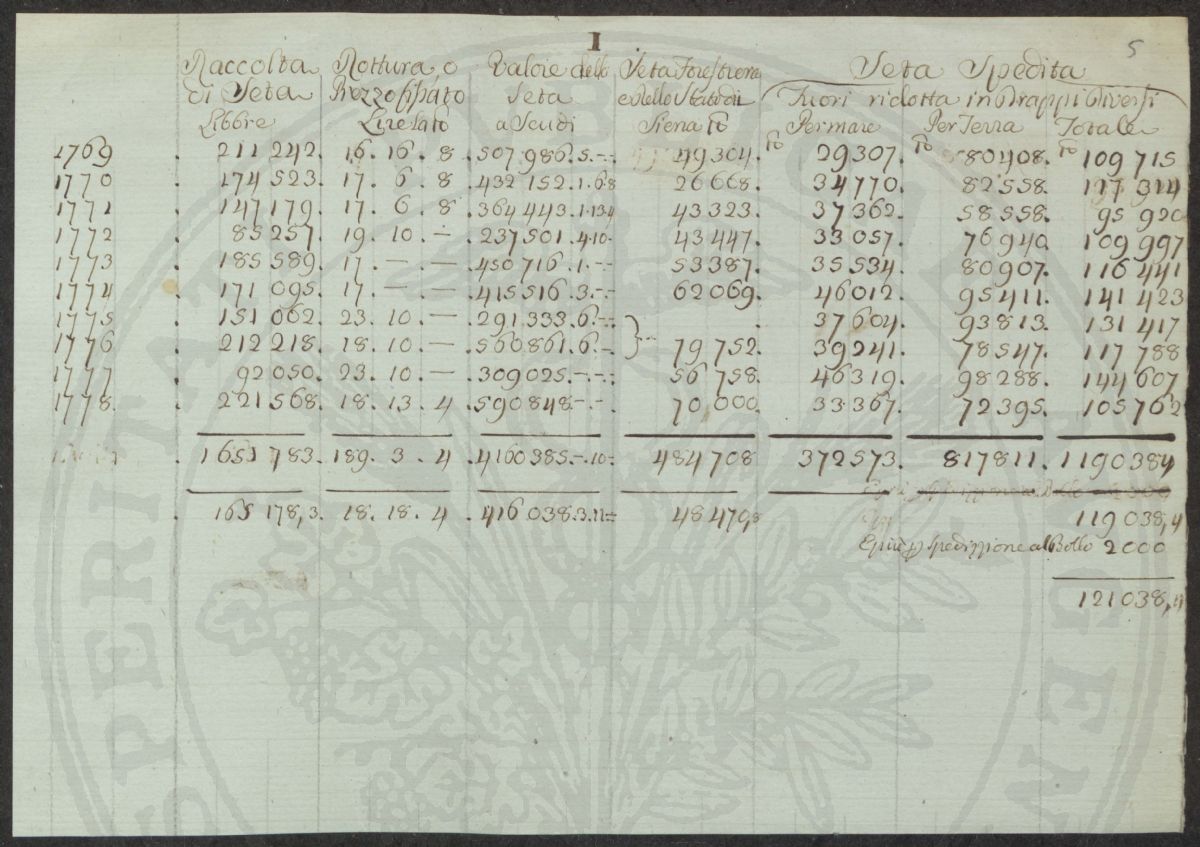 I
5
Raccolta di Seta Libbre | Rottura o Prezzo fissato Lire lato | Valore della Seta a Scudi | Seta Forestiera e dello Stato di Siena | Seta Spedita Fuori ridotta in Drappi Diversi
Per mare | Per Terra | Totale
1769 . 211 242. 16. 16. 8 .507.986.5.-- 49304. 29307. 80408. 109 715
1770 . 174 523. 17. 6. 8 .432 152.1.6.8 26668. 34770. 82558. 117 314
1771 . 147 179. 17. 6. 8 .364 443.1.13.4 43323. 37362. 58558. 95 920
1772 . 85 257. 19. 10. — .237 501.4.10. 43447. 33057. 76940. 109 997
1773 . 185 589. 17. — — .450 716.1.-- 53387. 35534. 80907. 116 441
1774 . 171 095. 17. — — .415 516.3.-- 62069. 46012. 95411. 141 423
1775 . 151 062. 23. 10. — .291.333.6.-- 37604. 93813. 131 417
1776 . 212 218. 18. 10. — .560 861.6.-- 79 752. 39241. 78547. 117 788
1777 . 92 050. 23. 10. — .309 025.-.- 56 758. 46319. 98288. 144 607
1778 . 221 568. 18. 13. 4 .590 848.-.- 70 000. 33367. 72395. 105 762
. 1651 783. 189. 3. 4 .4160 385.-.10.- 484 708 372 573. 817 811. 1190384
. 165 178,3. 18. 18. 4 .416 038.3.11.- 48 470,8 119 038,4
E più p spedizzione al Bollo 2000
121038,4
SPERITAT